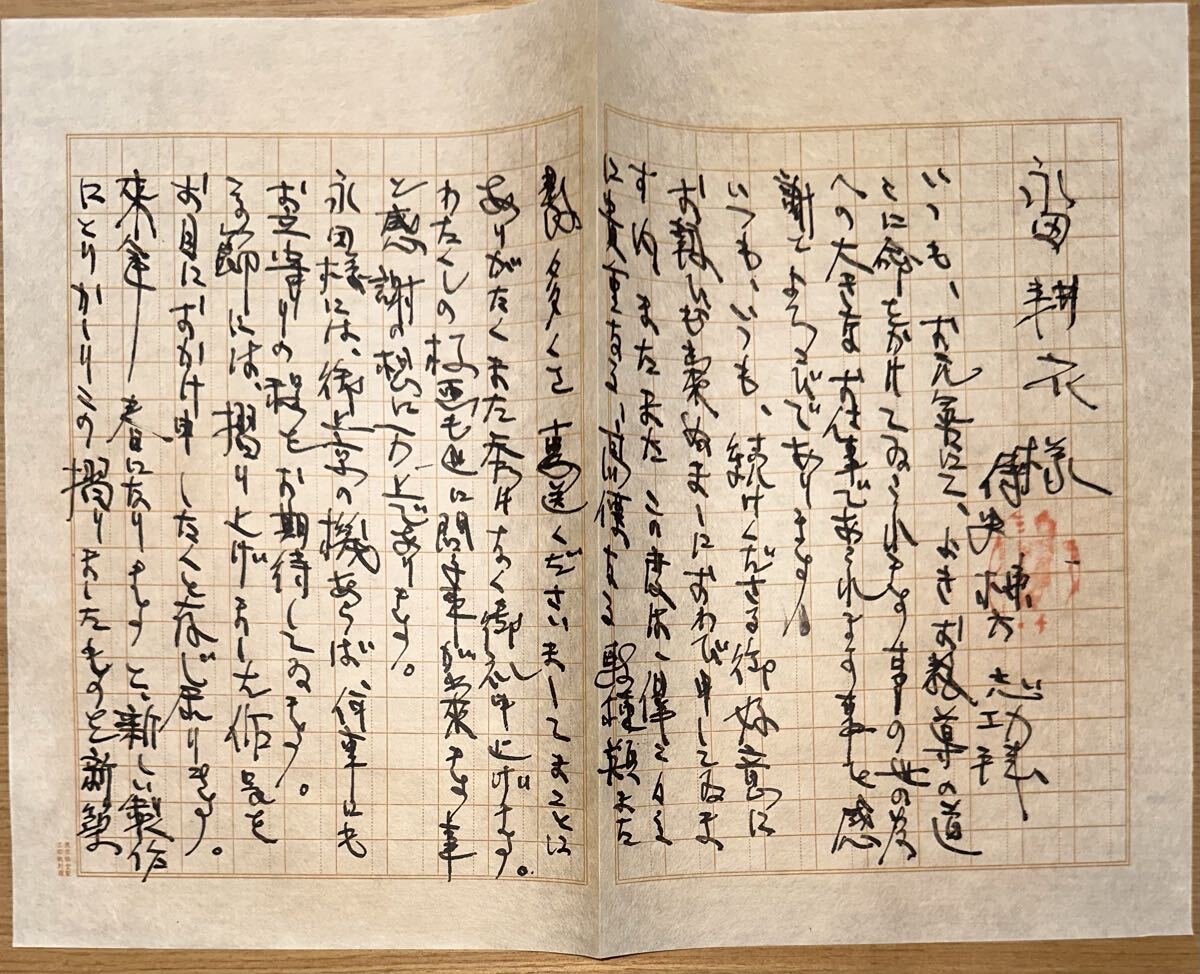 永田耕衣様
侍史 棟方志功拝
いつも、お元気にて、よきお教導の道
とに命をかけてゐられます事の世の為
への大きなお仕事であられます事を感
謝してよろこびであります
いつも、いつも、続けくださる御好意に
お報ひも出来ぬまゝにおわび申してゐま
す内 またまた この度は、
に貴重なる 高価なる 数種類また
数多くを恵送くださいましてまことに
ありがたくまた忝けなく御礼申上げます。
わたくしの板画も世に問ふ事が出来ます事
と感謝の想ひ一方上であります。
永田様には、御上京の機あらば、何事にも
お立寄りの程をお期待してゐます。
その節には、摺り上げました佰是を
お目におかけ申したくと存じ居ります。
来年 春になりますと、新しい製作
にとりかゝりこの摺りましたものを新築